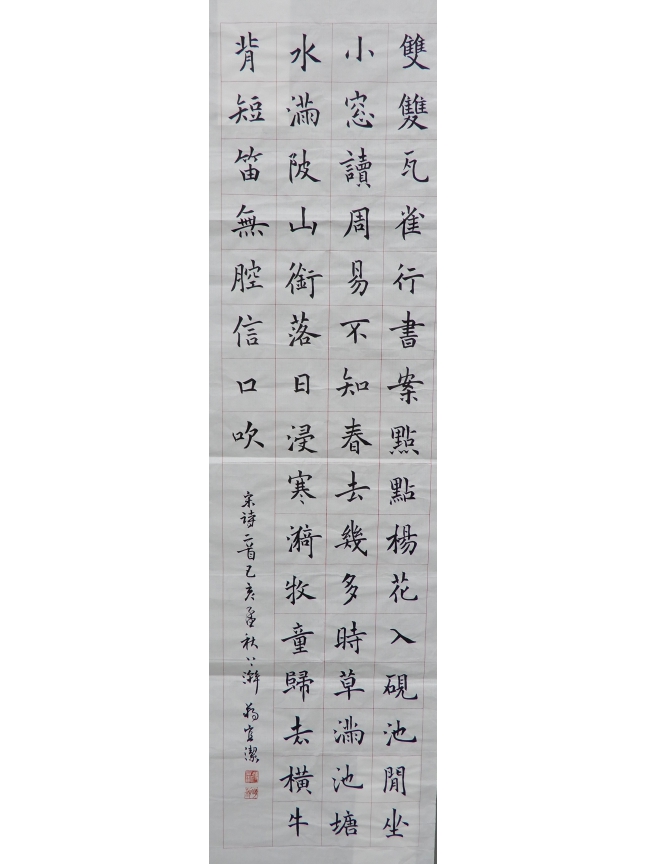 雙雙瓦雀行書案點點楊花入硯池閒坐
小窓讀周易不知春去幾多時草滿池塘
水滿陂山銜落日浸寒漪牧童歸去橫牛
背短笛無腔信口吹
宋诗二首己亥孟秋宜潔